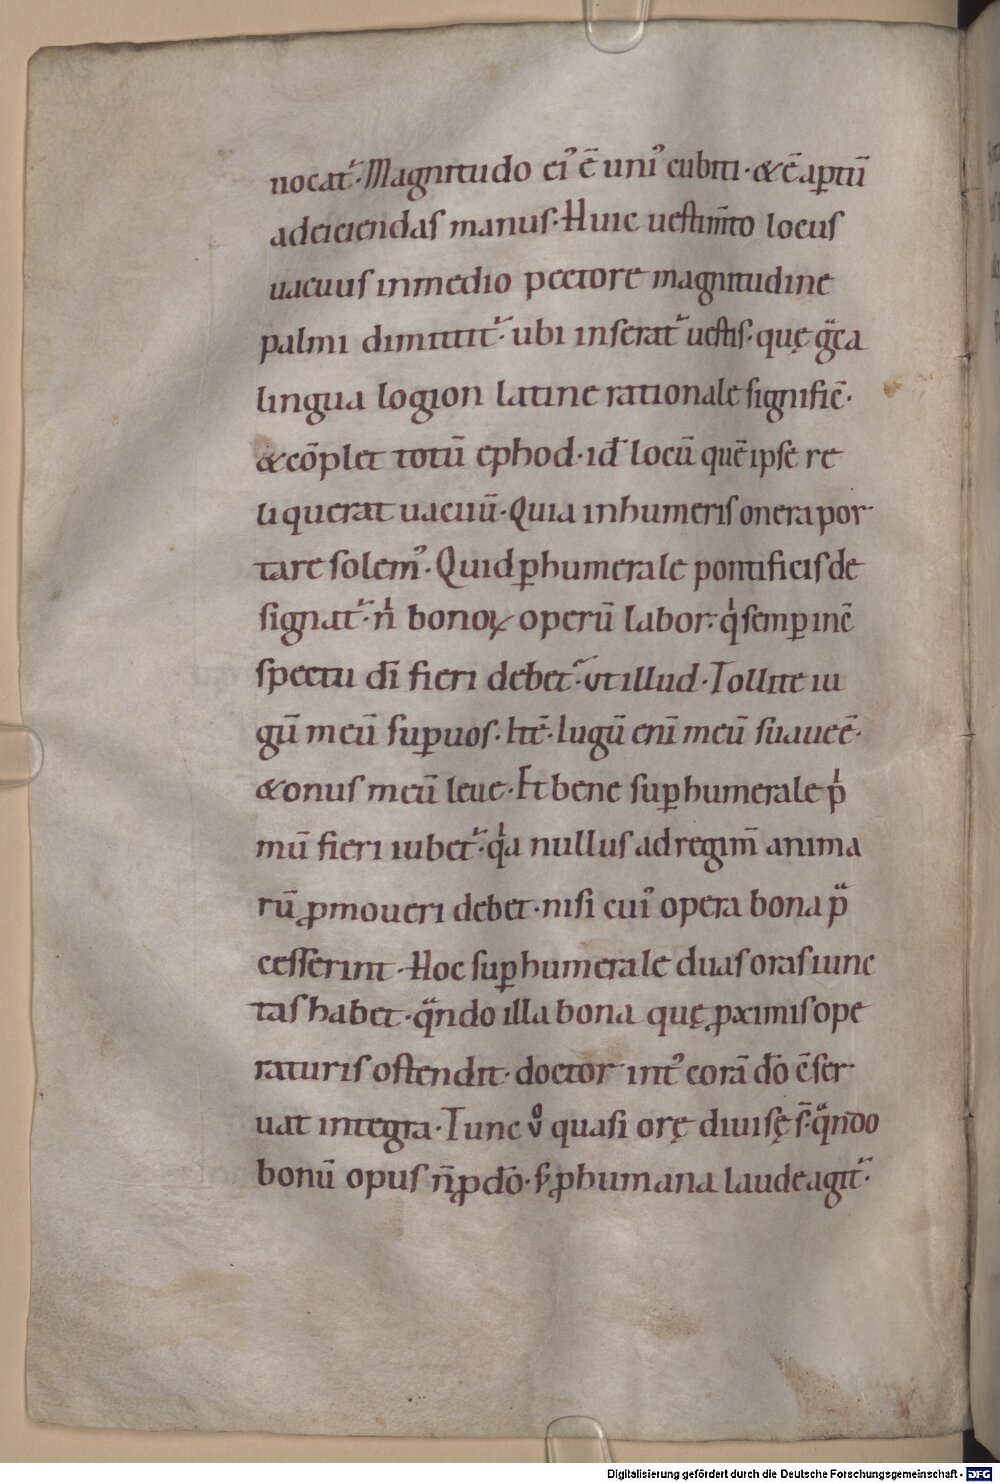 uocat᷑· Magnitudo ei᾽ ē uni᾽ cubiti· & ē aptū
ad eiciendas manus· Huic uestim̄to locus
uacuus in medio pectore magnitudine
palmi dimittit᷑· ubi inserat᷑ uestis· quę gͣca
lingua logion latine rationale signific̄·
& cōplet totū ephod· id ̄ locū quē ipse re
liquerat uacuū· Quia in humeris onera por
tare solem᾽· Quid ꝑ humerale pontificis de
signat᷑· n̍ bonoꝝ operū labor· qͥ semꝑ in c̄
spectu dī fieri debet᷑· ut illud· Tollite iu
gū meū suꝑ uos· Ite̅· Iugū enī meū suaue ē·
& onus meū leue· Et bene suꝑhumerale pͥ
mū fieri iubet᷑· qͥa nullus ad regim̄ anima
rū ꝓmoueri debet· nisi cui᾽ opera bona pͣ
cesserint· Hoc suꝑhumerale duas oras iunc
tas habet· qͣndo illa bona quę ꝓximis ope
raturis ostendit· doctor int᾽ corā dō c̄ser
uat integra· Tunc uͦ quasi orę diuisę s̄· qͣndo
bonū opus n̄ ꝓ dō· s; ꝓ humana laude agit᷑·
Digitalisierung gefördert durch die Deutsche Forschungsgemeinschaft - DFG